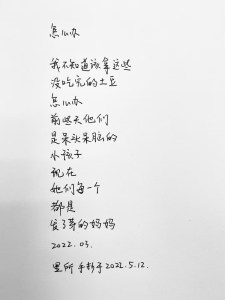 怎么办
我不知道该拿这些
没吃完的土豆
怎么办
前些天他们
是呆头呆脑的
小孩子
现在
她们每一个
都是
发了芽的妈妈
2022.03.
里所 手抄于2022.5.12.